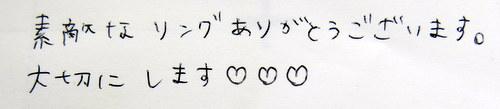 素敵な リングありがとうございます。
大切に します♡♡♡